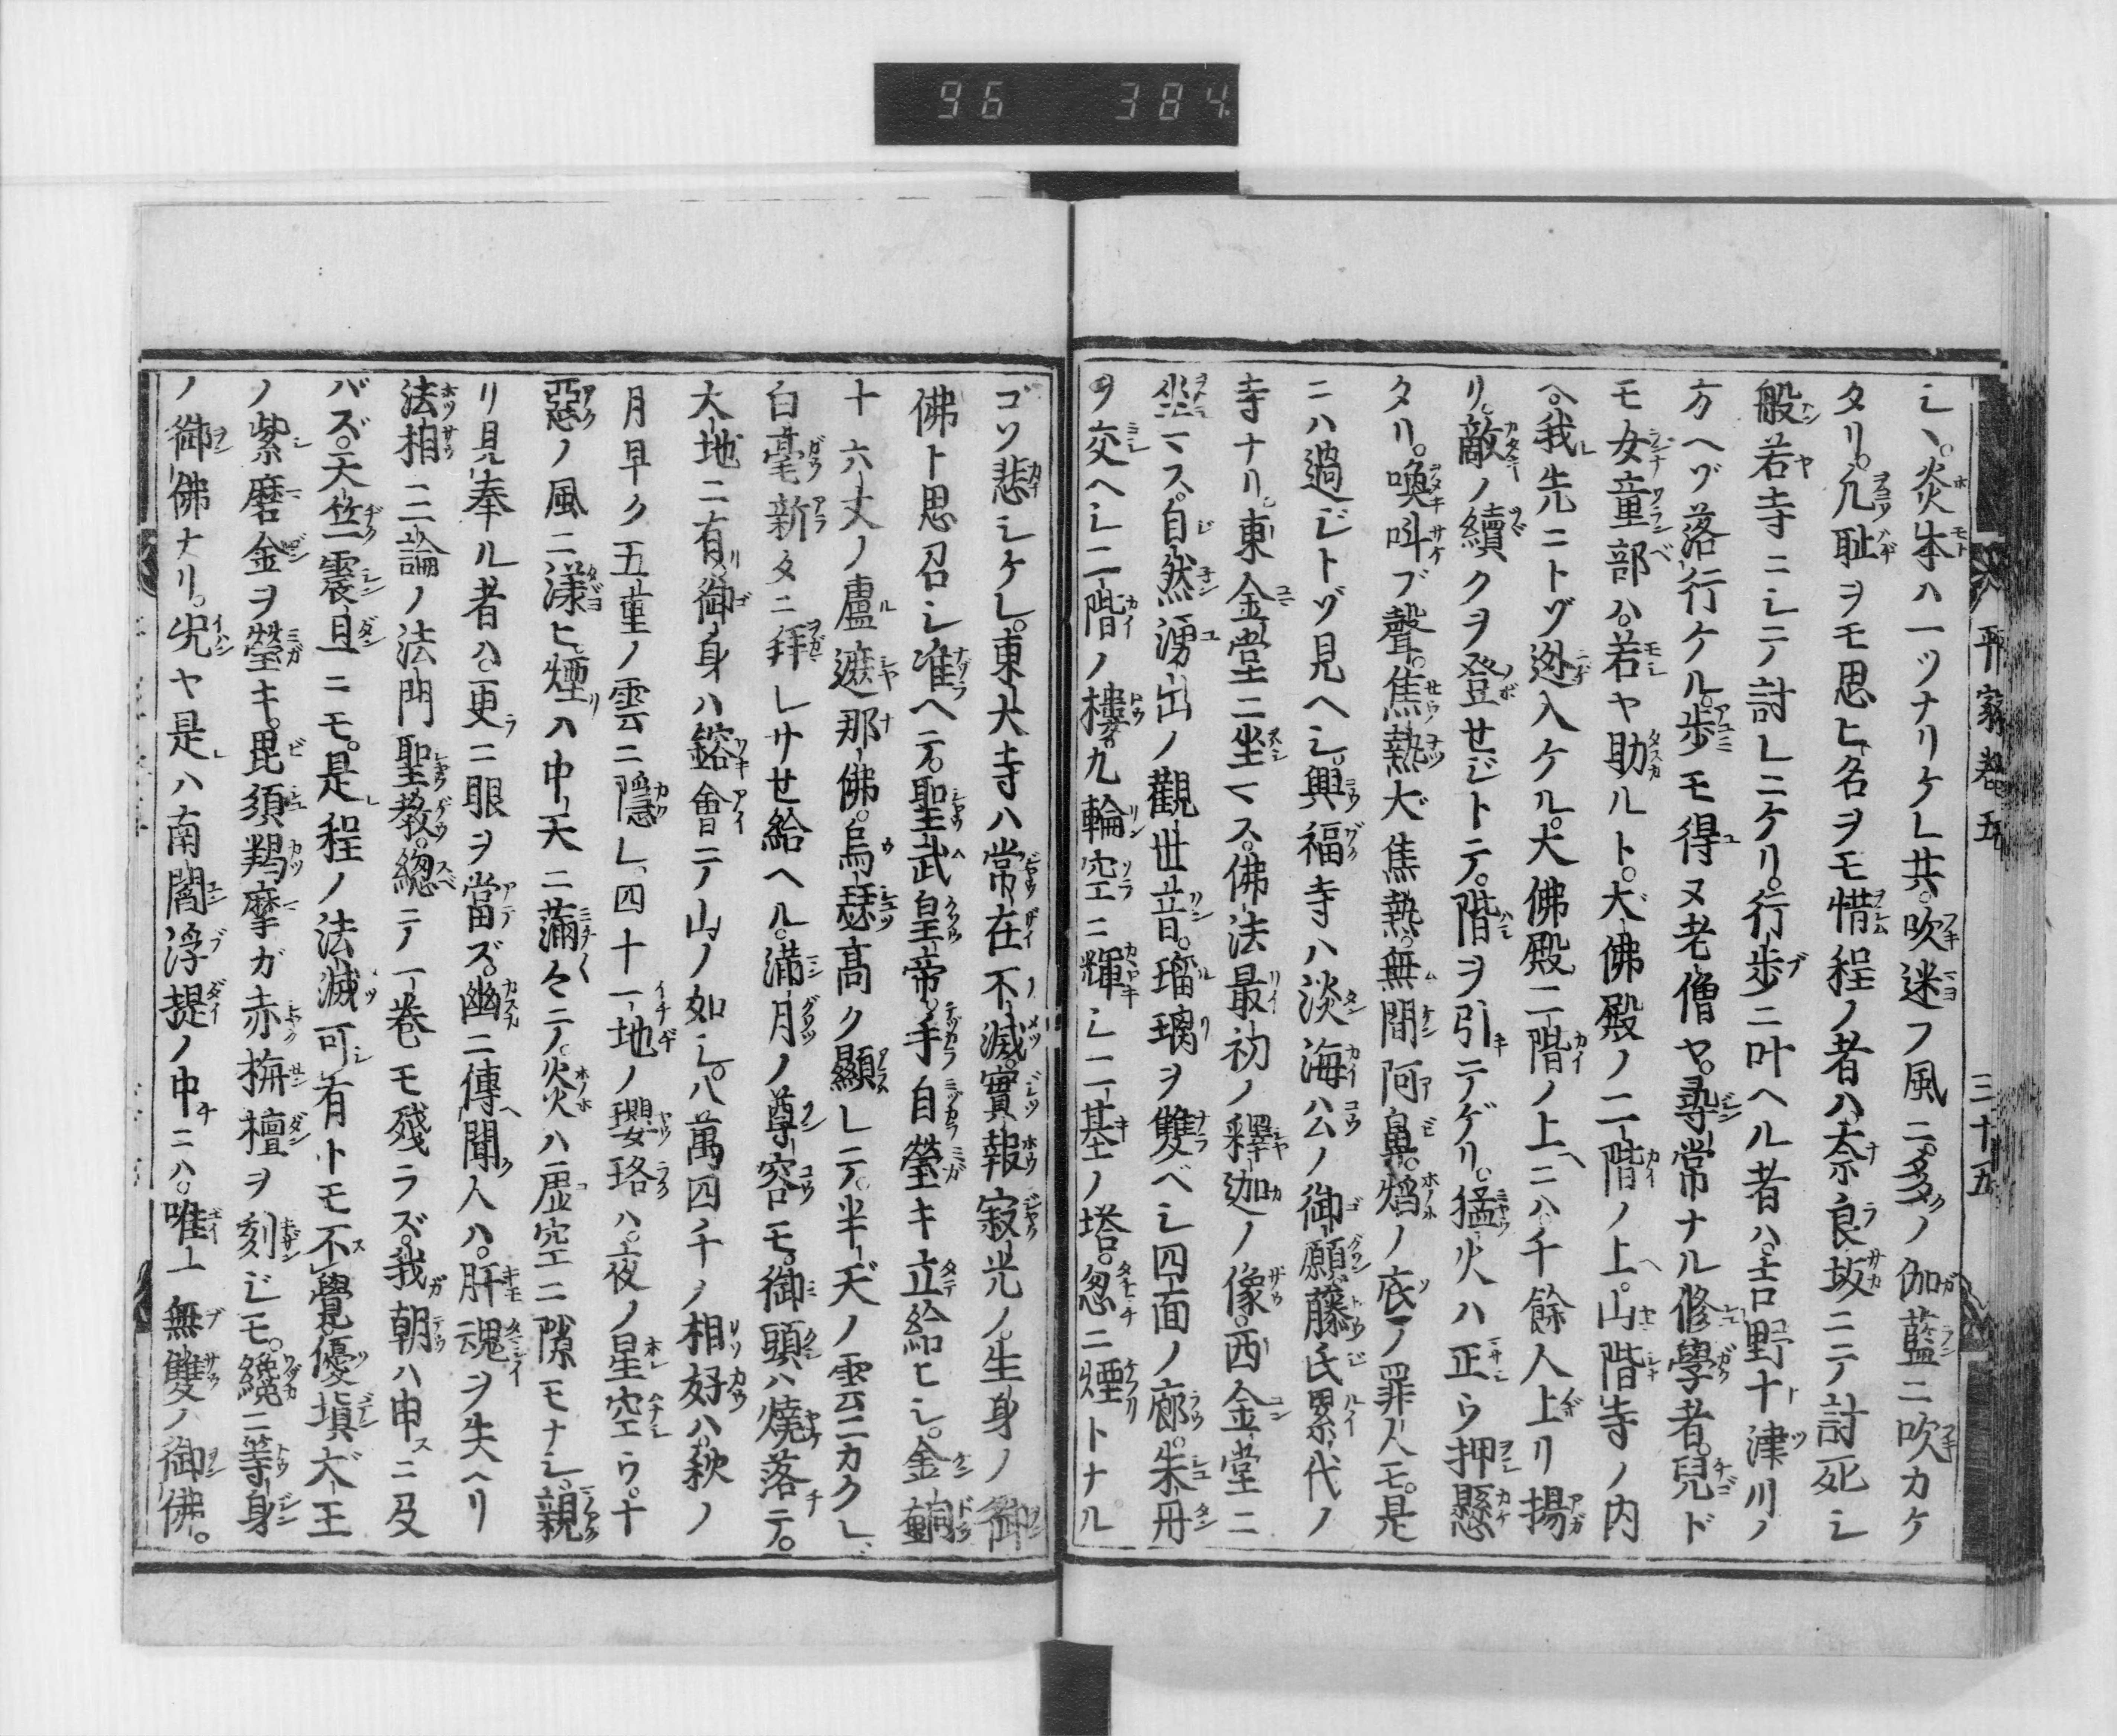 96 384
平家巻五 三十五
シヽ。炎本ハ一ツナリケレ共。吹迷フ風ニ。多ノ伽藍ニ吹カケ
タリ。凡耻ヲモ思ヒ、名ヲモ惜程ノ者ハ、奈良坂ニテ討死シ
般若寺ニシテ討レニケリ。行歩ニ叶ヘル者ハ。吉野十津川ノ
方ヘゾ落行ケル。歩モ得ヌ老僧ヤ。尋常ナル修學者。兒ド
モ女童部ハ。若ヤ助ルト。大佛殿ノ二階ノ上。山階寺ノ内
ヘ。我先ニトゾ迯入ケル。大佛殿二階ノ上ニハ。千餘人上リ揚
リ。敵ノ續クヲ登せジトテ。階ヲ引テゲリ。猛火ハ正ウ押懸
タリ。喚叫ブ聲。焦熱大焦熱。無間阿鼻。焰ノ底ノ罪人モ。是
ニハ過ジトゾ見ヘシ。興福寺ハ淡海公ノ御願藤氏累代ノ
寺ナリ。東金堂ニ坐マス。佛法最初ノ釋迦ノ像。西金堂ニ
坐マス。自然湧出ノ觀世音。瑠璃ヲ雙ベシ四面ノ廊。朱丹
ヲ交ヘシ二階ノ樓。九輪空ニ輝シ二基ノ塔。忽ニ煙トナル
ゴソ悲シケレ。東大寺ハ常在不滅。實報寂光ノ。生身ノ御
佛ト思召シ准ヘテ。聖武皇帝。手自瑩キ立給ヒシ。金銅
十六丈ノ盧遮那佛。烏瑟高ク顯レテ。半天ノ雲ニカクレ、
白毫新タニ拜レサせ給ヘル。滿月ノ尊容モ。御頭ハ燒落テ。
大地ニ有。御身ハ鎔會テ山ノ如シ。八萬四千ノ相好ハ。秋ノ
月早ク五重ノ雲ニ隱レ、四十一地ノ瓔珞ハ。夜ノ星空ウ。十
惡ノ風ニ漾ヒ。煙ハ中天ニ滿々テ。炎ハ虛空ニ隙モナシ。親
リ見奉ル者ハ。更ニ眼ヲ當ズ。幽ニ傳聞人ハ。肝魂ヲ失ヘリ
法相三論ノ法門聖教。總テ一巻モ殘ラズ。我朝ハ申ニ及
バズ。天竺震旦ニモ。是程ノ法滅可有トモ不覺。優塡大王
ノ紫磨金ヲ瑩キ。毘須羯摩ガ赤栴檀ヲ刻ジモ。纔ニ等身
ノ御佛ナリ。況ヤ是ハ南閻浮提ノ中ニハ。唯一無雙ノ御佛。